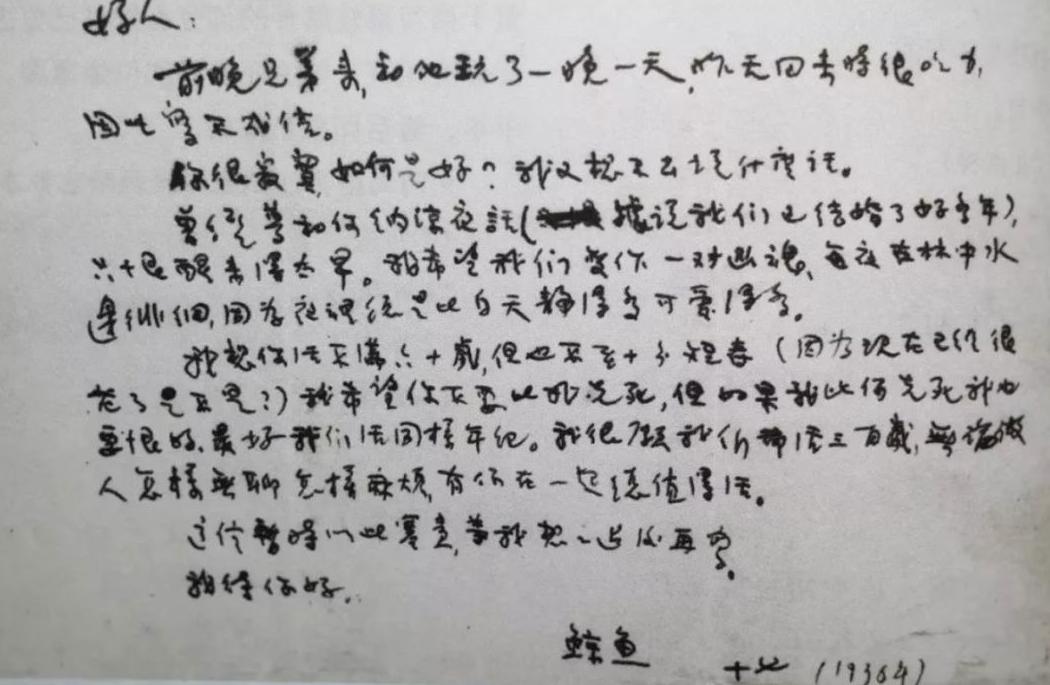 好人：
前晚兄弟来，和他玩了一晚一天，昨天回去时很吃力，
因此写不成信。
你很寂寞，如何是好？我又想不出说什么话。
曾经梦和你纳凉夜話（据说我们已结婚了好多年），
只十恨醒来得太早。我希望我们变作一对幽魂，每夜在林中水
邊徘徊，因为夜裡总是比白天静得多可爱得多。
我想你活不满六十歲，但也不至十分短寿（因为现在已经很
老了是不是？）我希望你不要比我先死，但如果我比你先死我也
要恨的，最好我们活同樣年纪。我很願我们都活三百歲，無论做
人怎樣無聊怎樣麻烦，有你在一起總值得活。
这信暫時以此塞责，等我想一些後再写。
祝你好。
鯨魚
十七 （193604）